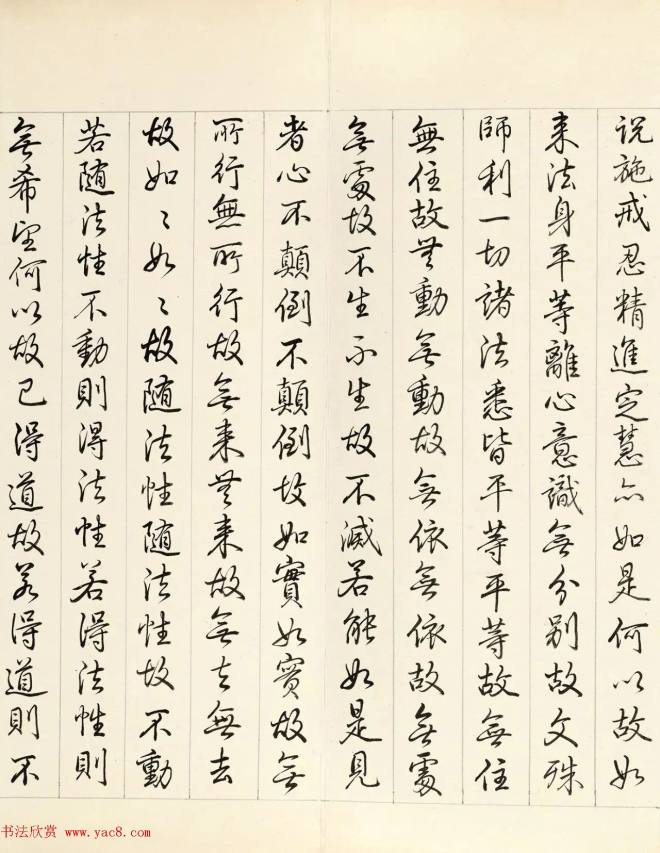 说施戒忍精進定慧亦如是何以故如
来法身平等離心意識無分别故文殊
師利一切諸法悉皆平等平等故無住
無住故無動無動故無依無依故無處
無處故不生不生故不滅若能如是見
者心不顛倒不顛倒故如實如實故無
所行無所行故無来無来故無去無去
故如〻如〻故随法性随法性故不動
若随法性不動則得法性若得法性則
無希望何以故已得道故若得道則不
书法欣赏 www.yac8.com